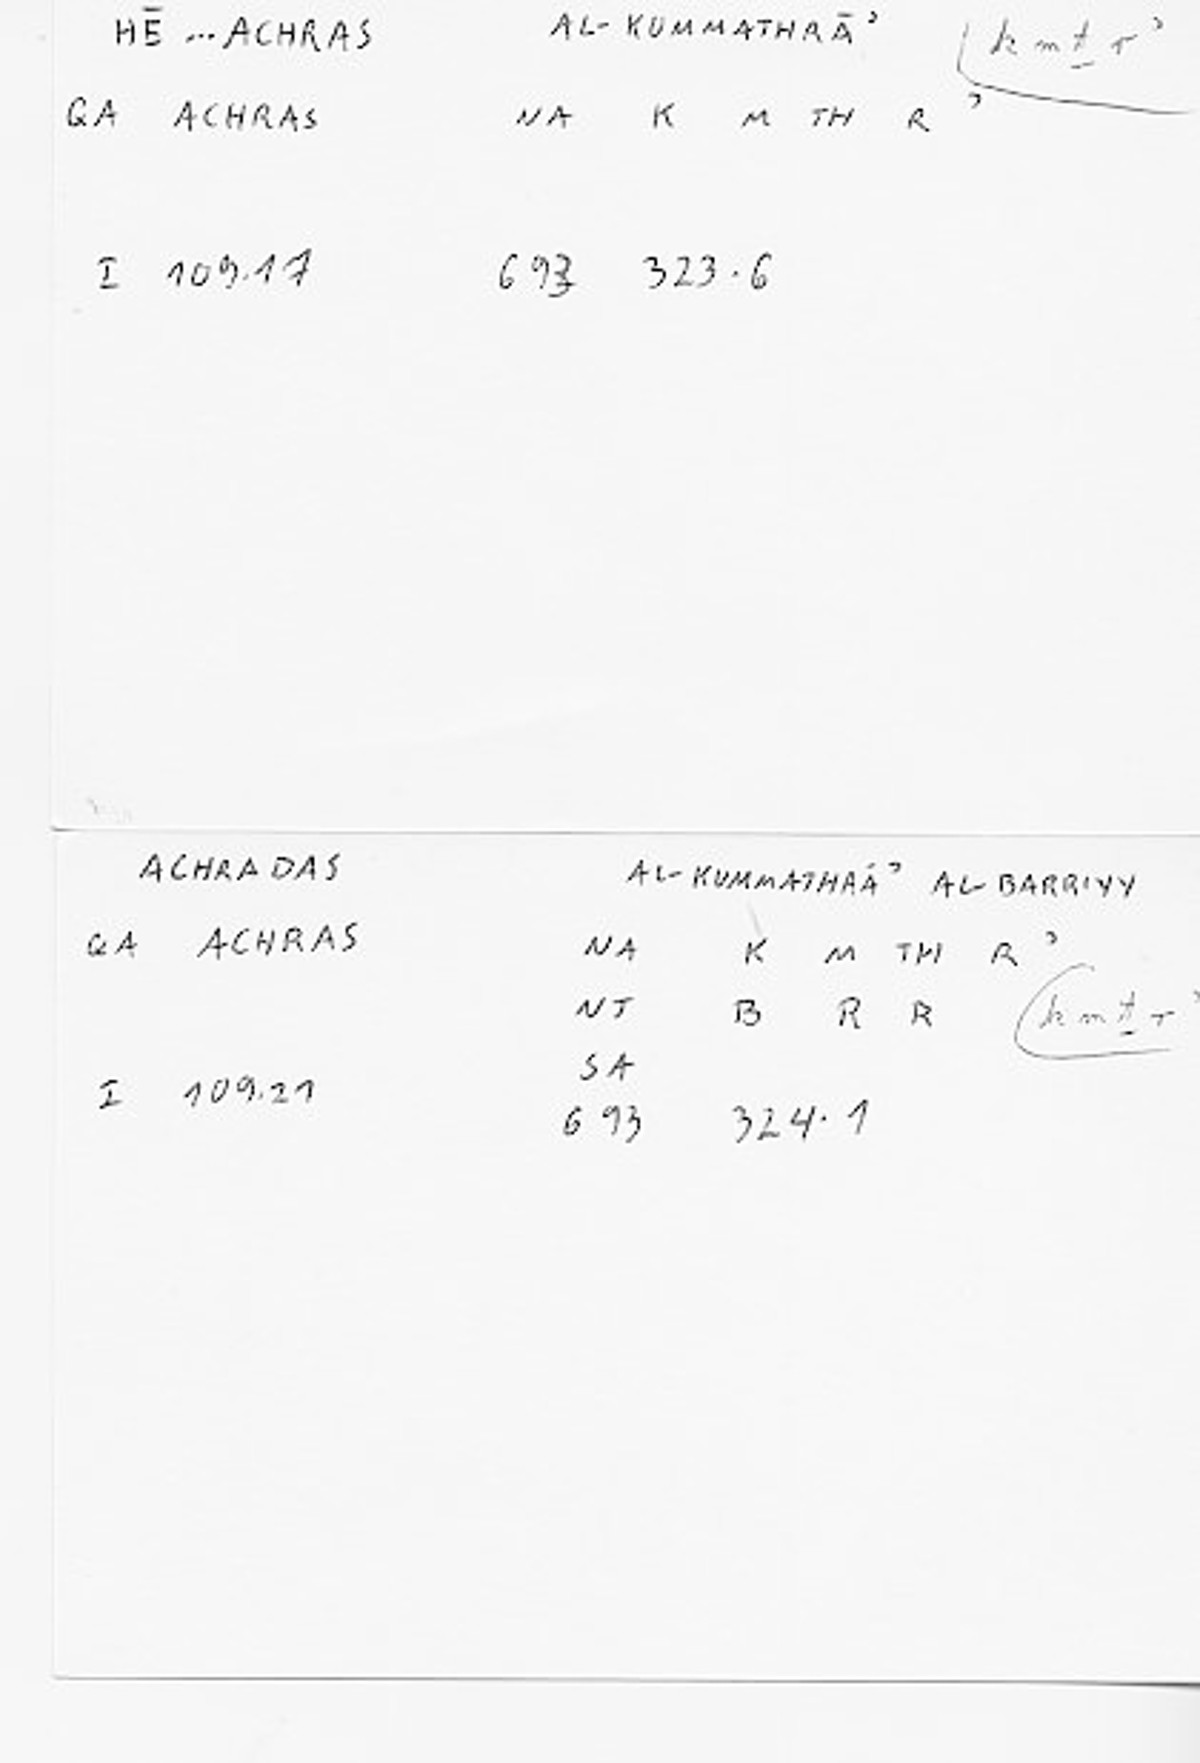 HĒ ...ACHRAS AL-KUMMATHRĀʾ kmṯrʾ
QA ACHRAS NA K M TH R ʾ
I 109.17 693 323.6
ACHRADAS AL-KUMMATHRĀʾ AL-BARRIYY
QA ACHRAS NA K M TH R ʾ
NJ B R R kmṯrʾ
SA
I 109.21
693 324.1